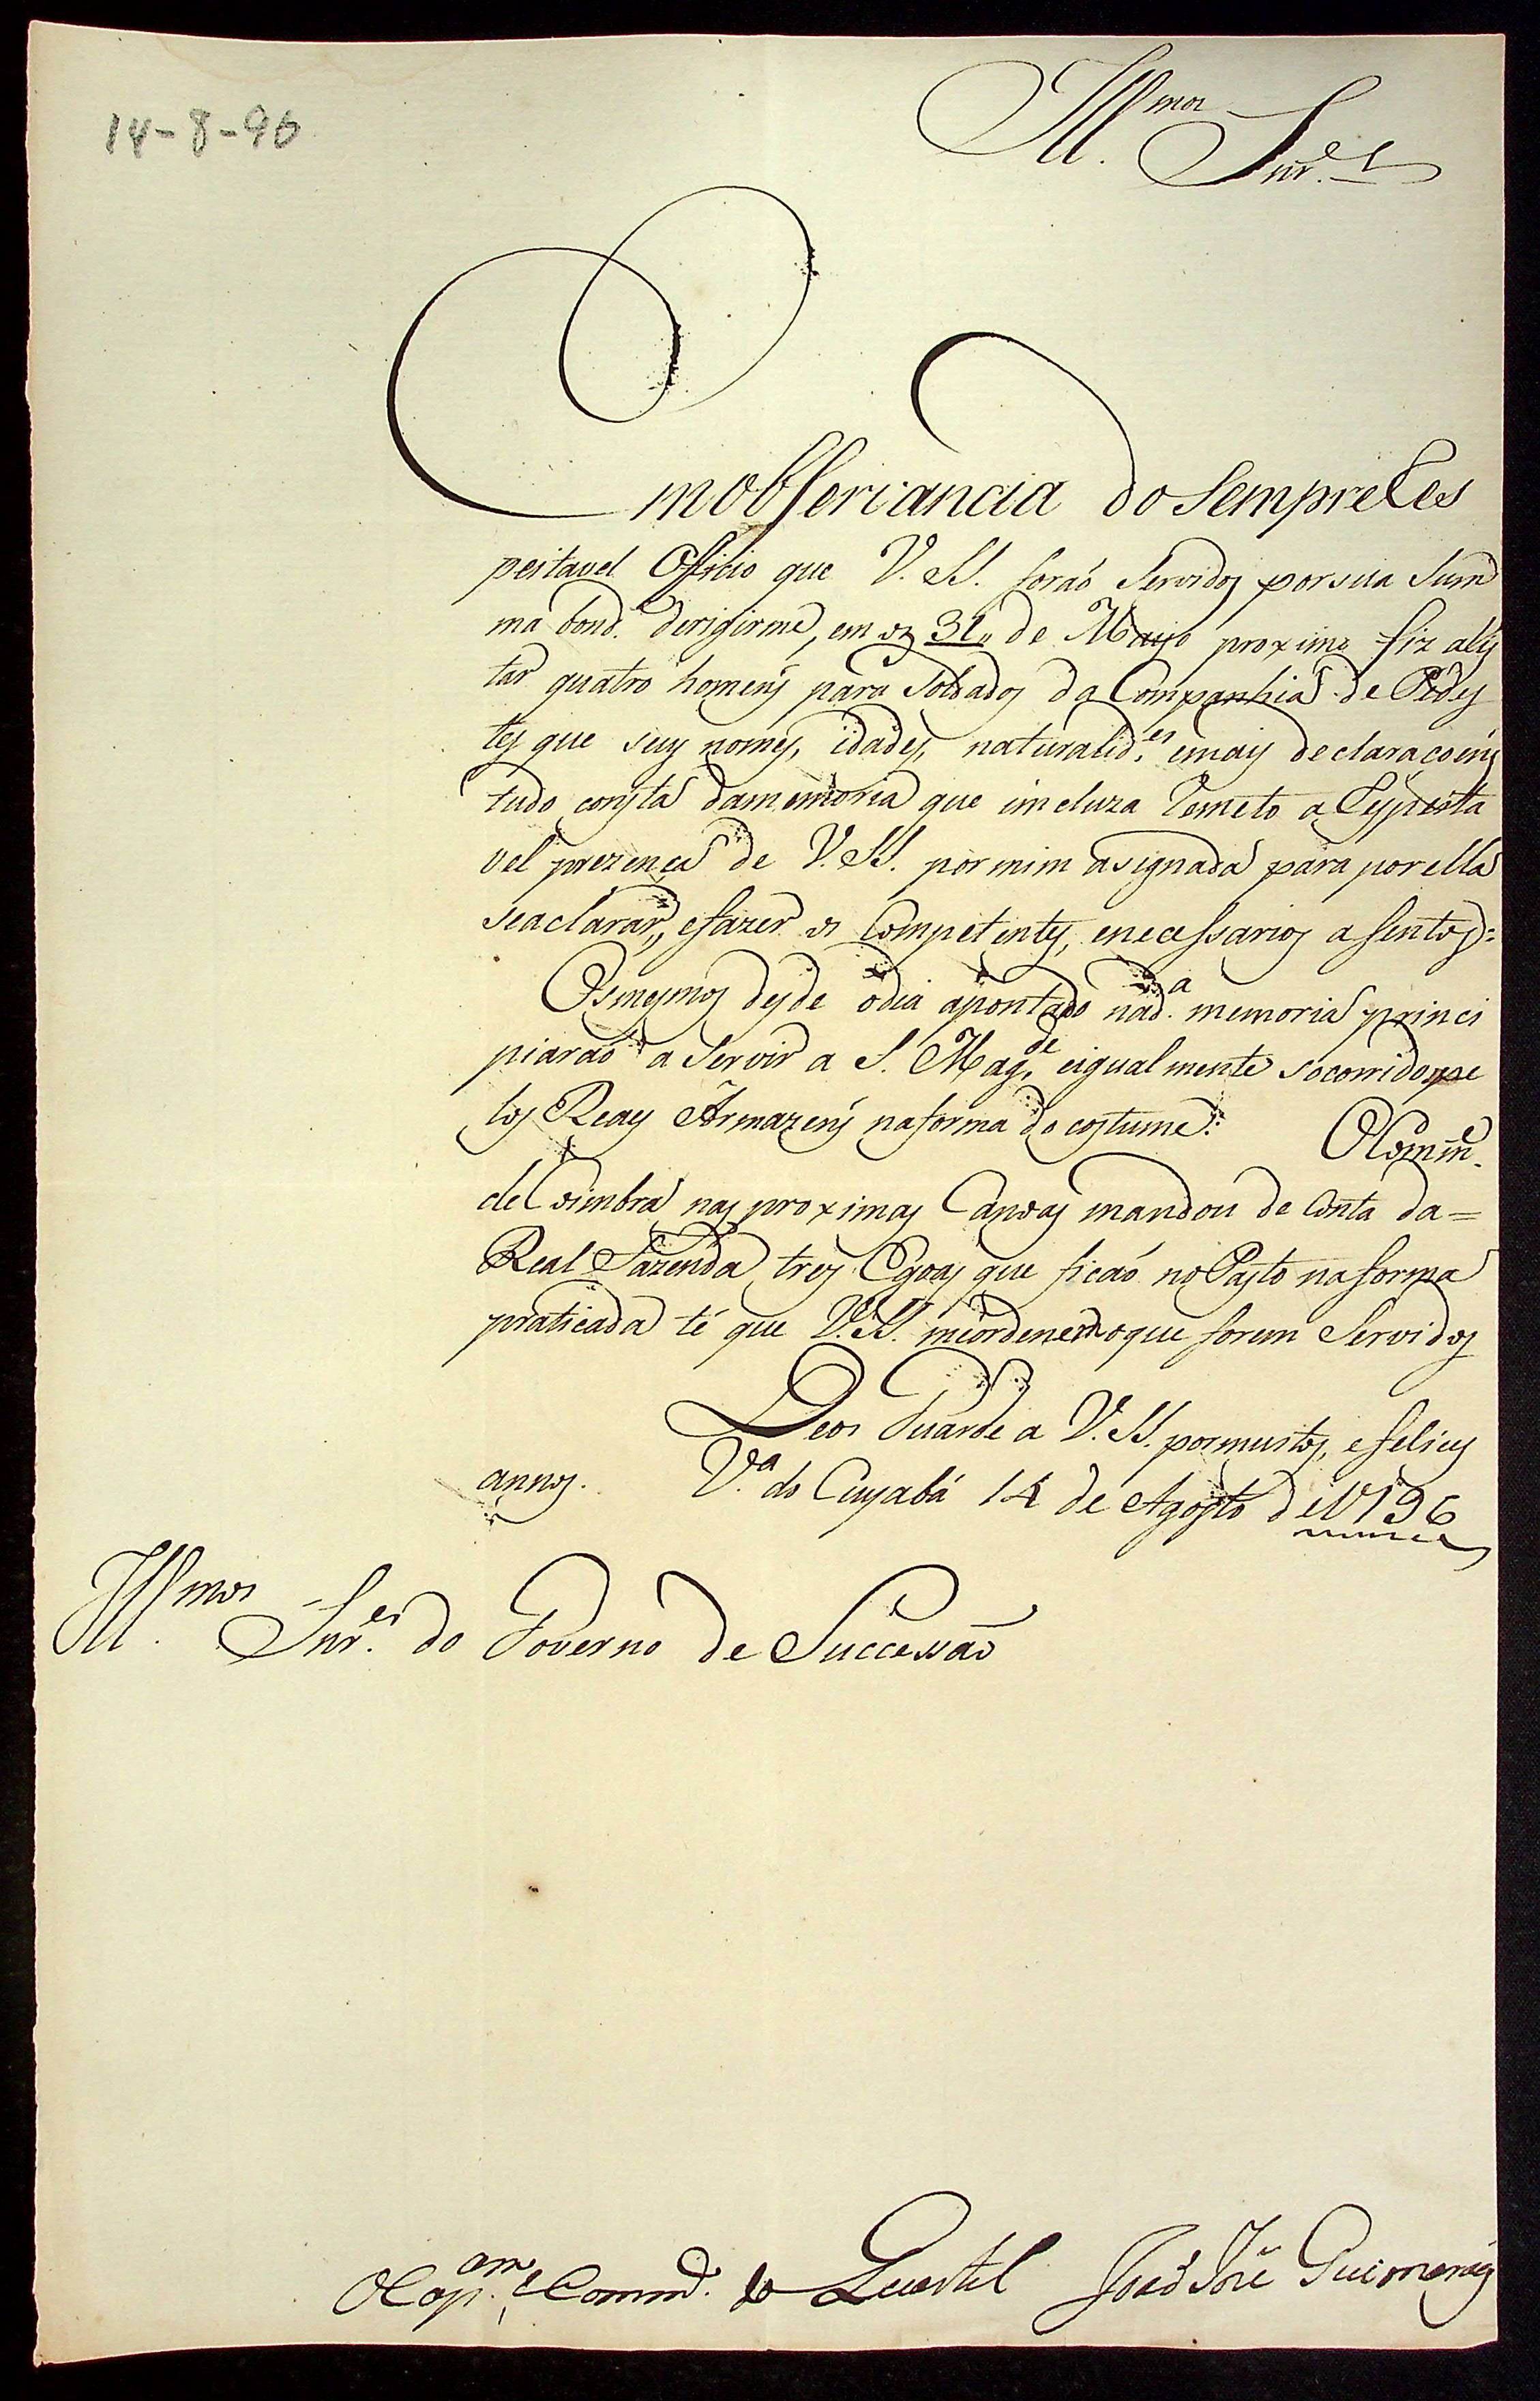 14-8-96
Ill.mos Snr.es
Em obsservancia do sempre Res
peitavel Officio que V. SS. foraõ servidos por sua sum
ma bond.e derigirme, em os 31,, de Mayo proximo fiz alis
tar quatro homens para Soldados da Companhia de Pedes
tes que seus nomes, idades, naturalid.es e mais declaracoens
tudo consta da memoria que imcluza Remeto a Respeita
vel prezença de V. SS. por mim asignada para por ella
se aclarar, e fazer os Competentes, e necessarios assentos:
Os mesmos desde o dia apontado na d.a memoria princi
piaraõ a servir a S. Mag.de e igualmente socorridos pe
los Reaes Armazens na forma do costume. O Comm.e
de Coimbra nas proximas Canoas mandou de Conta da=
Real Fazenda tres Egoas que ficaõ no Pasto na forma
praticada té que V. SS. me ordenem o que forem Servidos
Deos Guarde a V. SS. por muitos, e felices
annos. V.a do Cuyabá 14 de Agosto de 1796
Ill.mos Snr.es do Governo de Successaõ
O Cap.am e Comm.e do Quartel Joaõ José Guimaraes